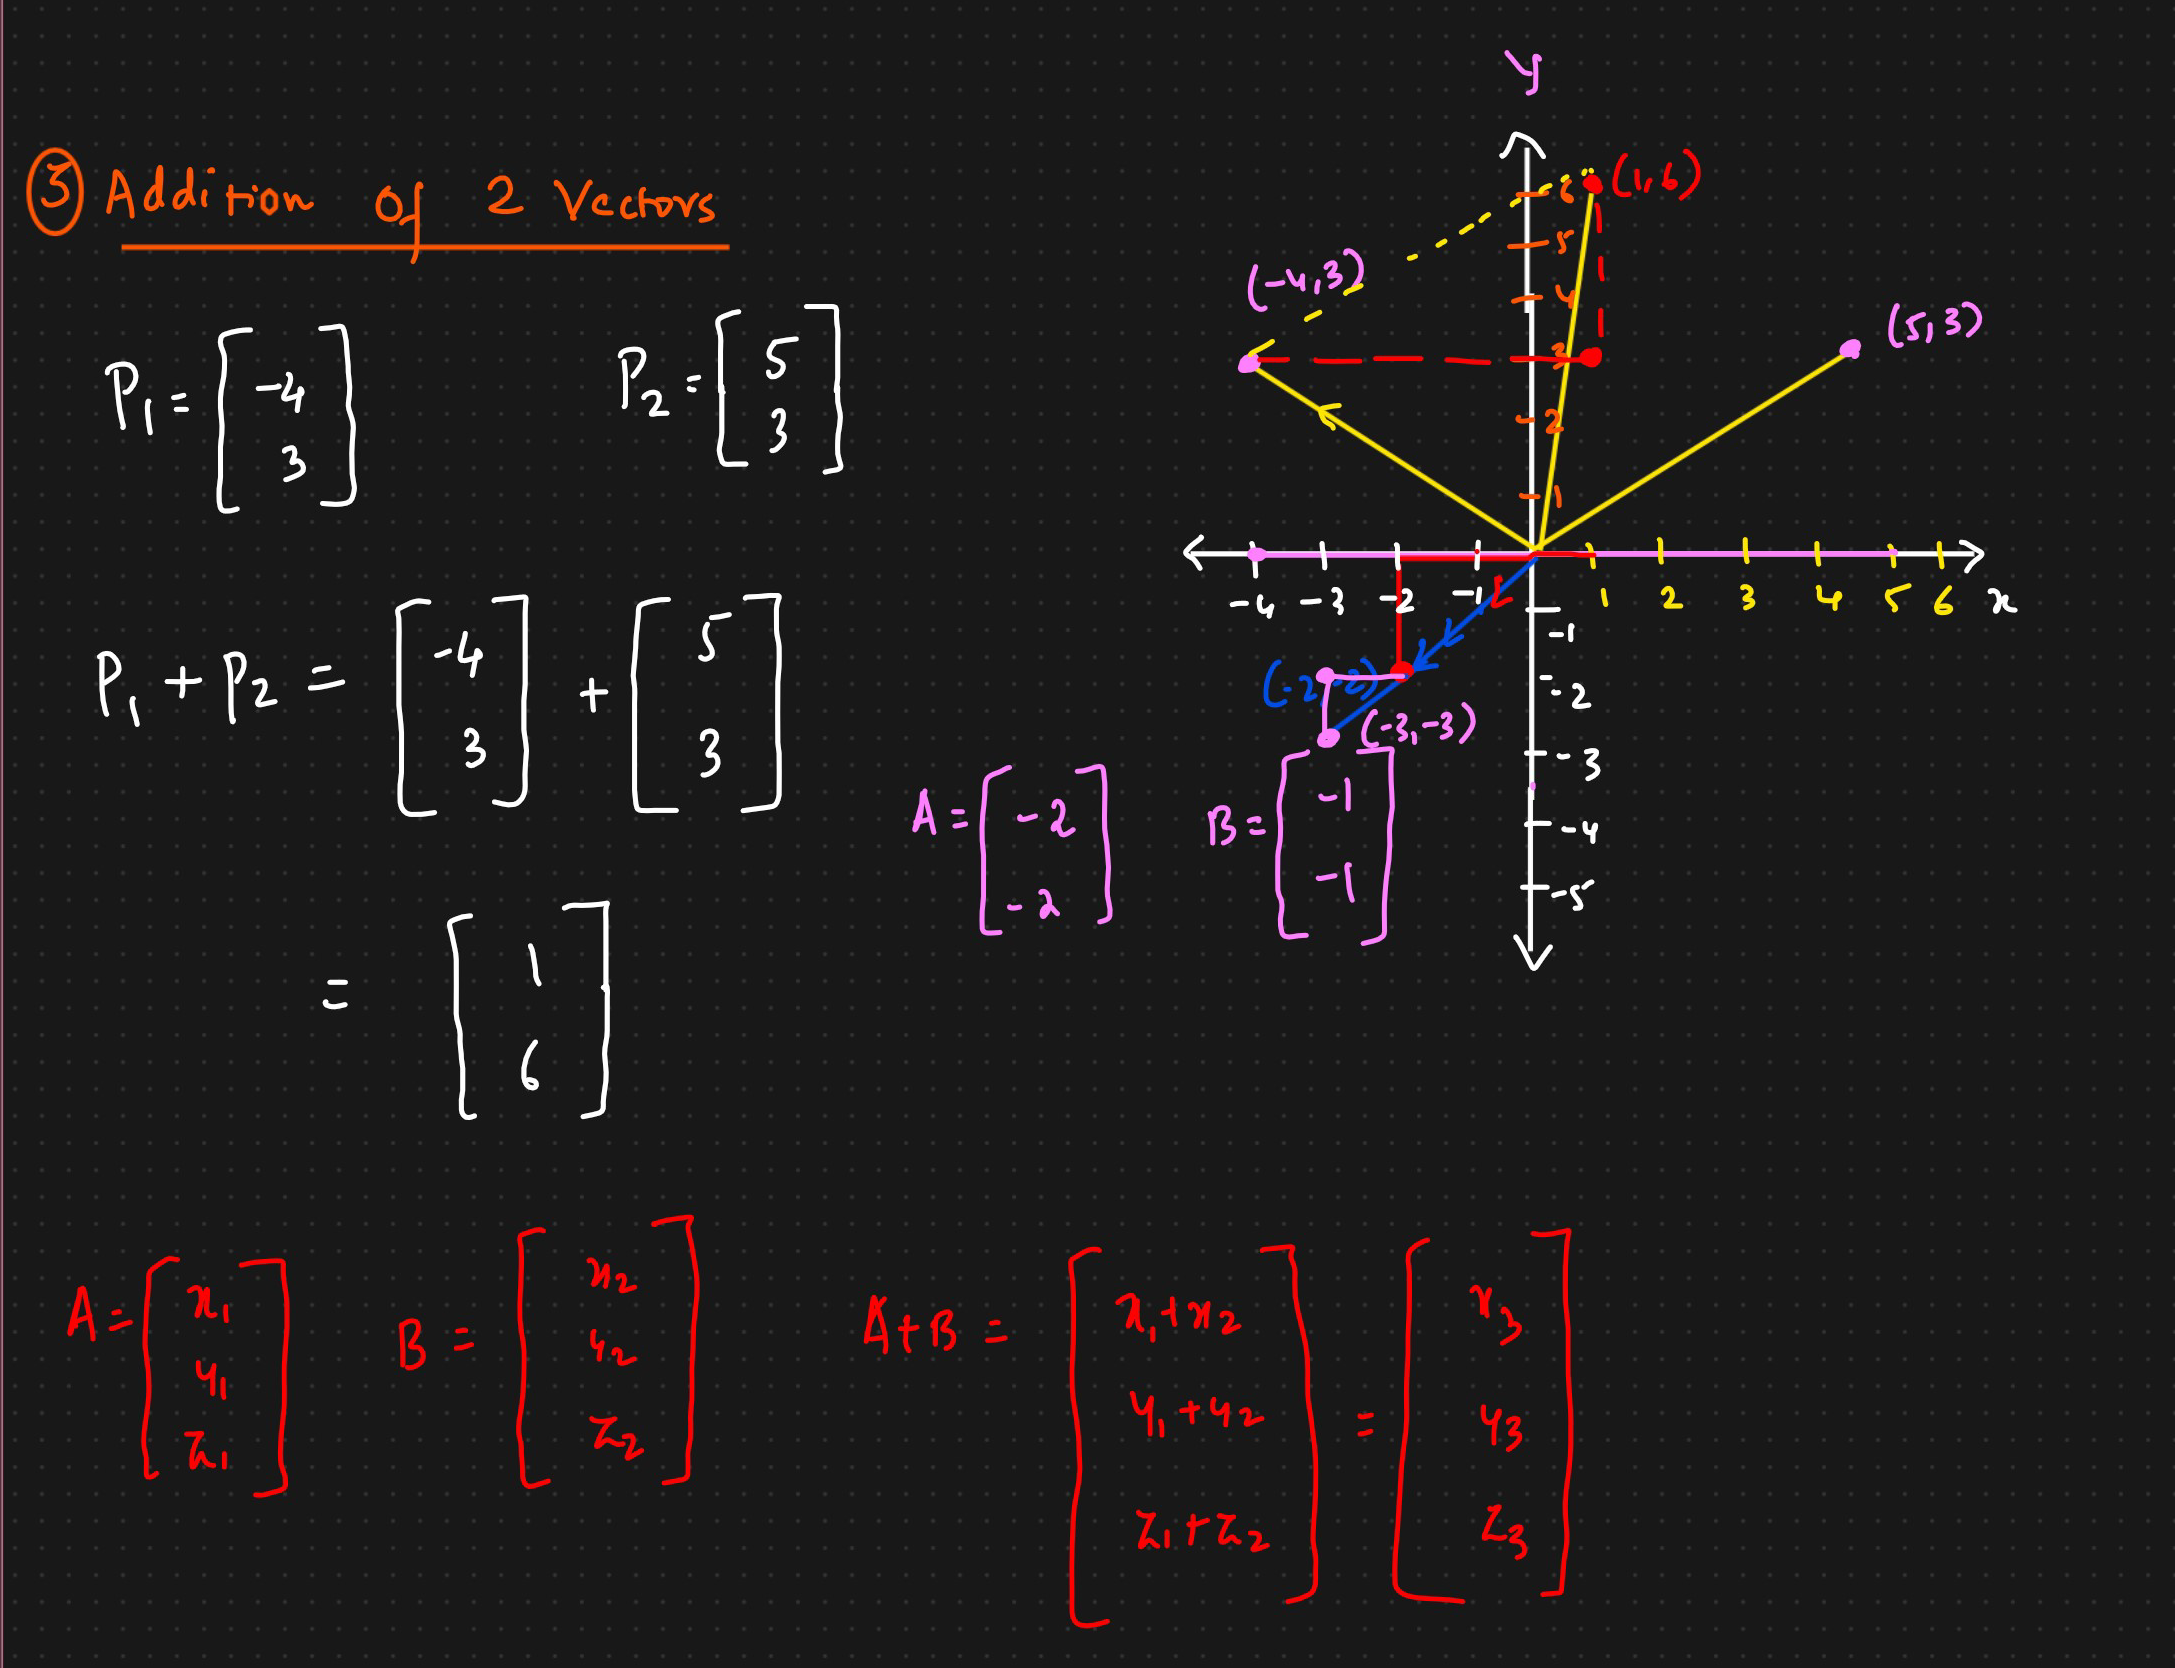 ③ Addition of 2 Vectors
P₁ = [-4 3]
P₂ = [5 3]
P₁ + P₂ = [-4 3] + [5 3]
= [1 6]
y
(1,6)
6
5
4
3
2
1
(-4,3)
(5,3)
-4 -3 -2 -1 1 2 3 4 5 6 x
-1
-2
-3
-4
-5
(-2,-2)
(-3,-3)
A = [-2 -2]
B = [-1 -1]
A = [x₁ y₁ z₁]
B = [x₂ y₂ z₂]
A+B = [x₁+x₂ y₁+y₂ z₁+z₂] = [x₃ y₃ z₃]